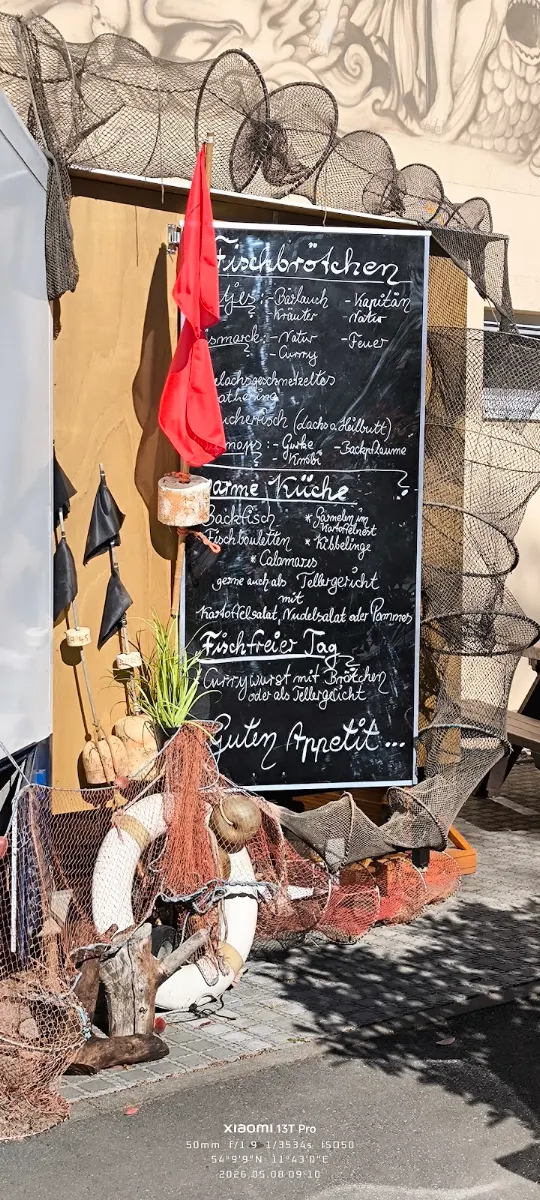 Fischbrötchen
tjes:- Bärlauch - Kapitän
Kräuter - Natur
smarck:- Natur - Feuer
- Curry
elachsgeschnetzeltes
athering
ucherfisch (Lachs o. Heilbutt)
maps:- Gurke - Backpflaume
Knobi
arme Küche
Backfisch * Garnelen im
Kartoffelnest
Fischbouletten * Kibbelinge
* Calamares
gerne auch als Tellergericht
mit
Kartoffelsalat, Nudelsalat oder Pommes
Fischfreier Tag
Currywurst mit Brötchen
oder als Tellergericht
Guten Appetit...
XIAOMI 13T Pro
50mm f/1.9 1/3534s ISO50
54°9'9"N 11°43'0"E
2026.05.08 09:10